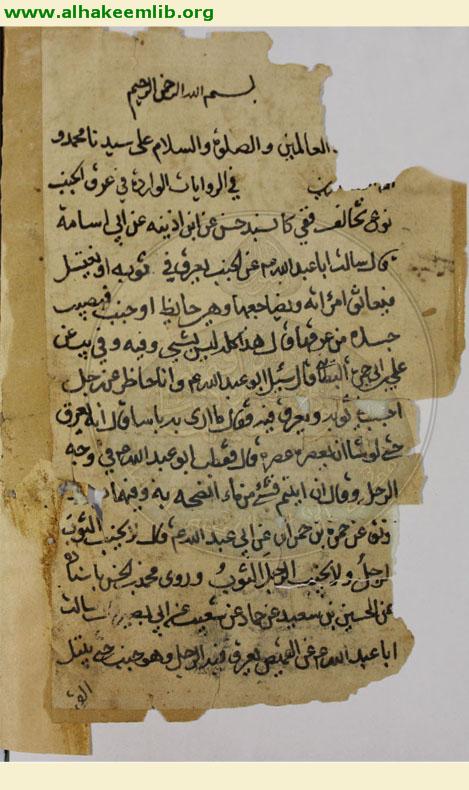 www.alhakeemlib.org
بسم الله الرحمن الرحيم
العالمين والصلوة والسلام على سيدنا محمد و
في الروايات الواردة في عرق الجنب
نوع تخالف ففي كا بسند حسن عن ابن اذينه عن ابي اسامة
قال سالت ابا عبد الله ع عن الجنب يعرق في ثوبه او يغتسل
فيعانق امرأته ويضاجعها وهي حايض او جنب فيصيب
جسده من عرقها قال هذا كله ليس بشئ وفيه وفي يب عن
علي ابن ابي حمزة قال سئل ابو عبد الله ع وانا حاظر عن رجل
اجنب في ثوبه ويعرق فيه فقال ما ارى به باسا قال انه يعرق
حتى لو شاء ان يعصره عصره قال فقطب ابو عبد الله ع في وجه
الرجل وقال ان ابيتم فشئ من ماء انضحه به وفيهما
عن حمزة بن حمران عن ابي عبد الله ع قال لا يجنب الثوب
الرجل ولا يجنب الرجل الثوب وروى محمد بن الحسن باسناده
عن الحسين بن سعيد عن حماد عن شعيب عن ابي بصير سالت
ابا عبد الله ع عن القميص يعرق فيه الرجل وهو جنب حتى يبتل